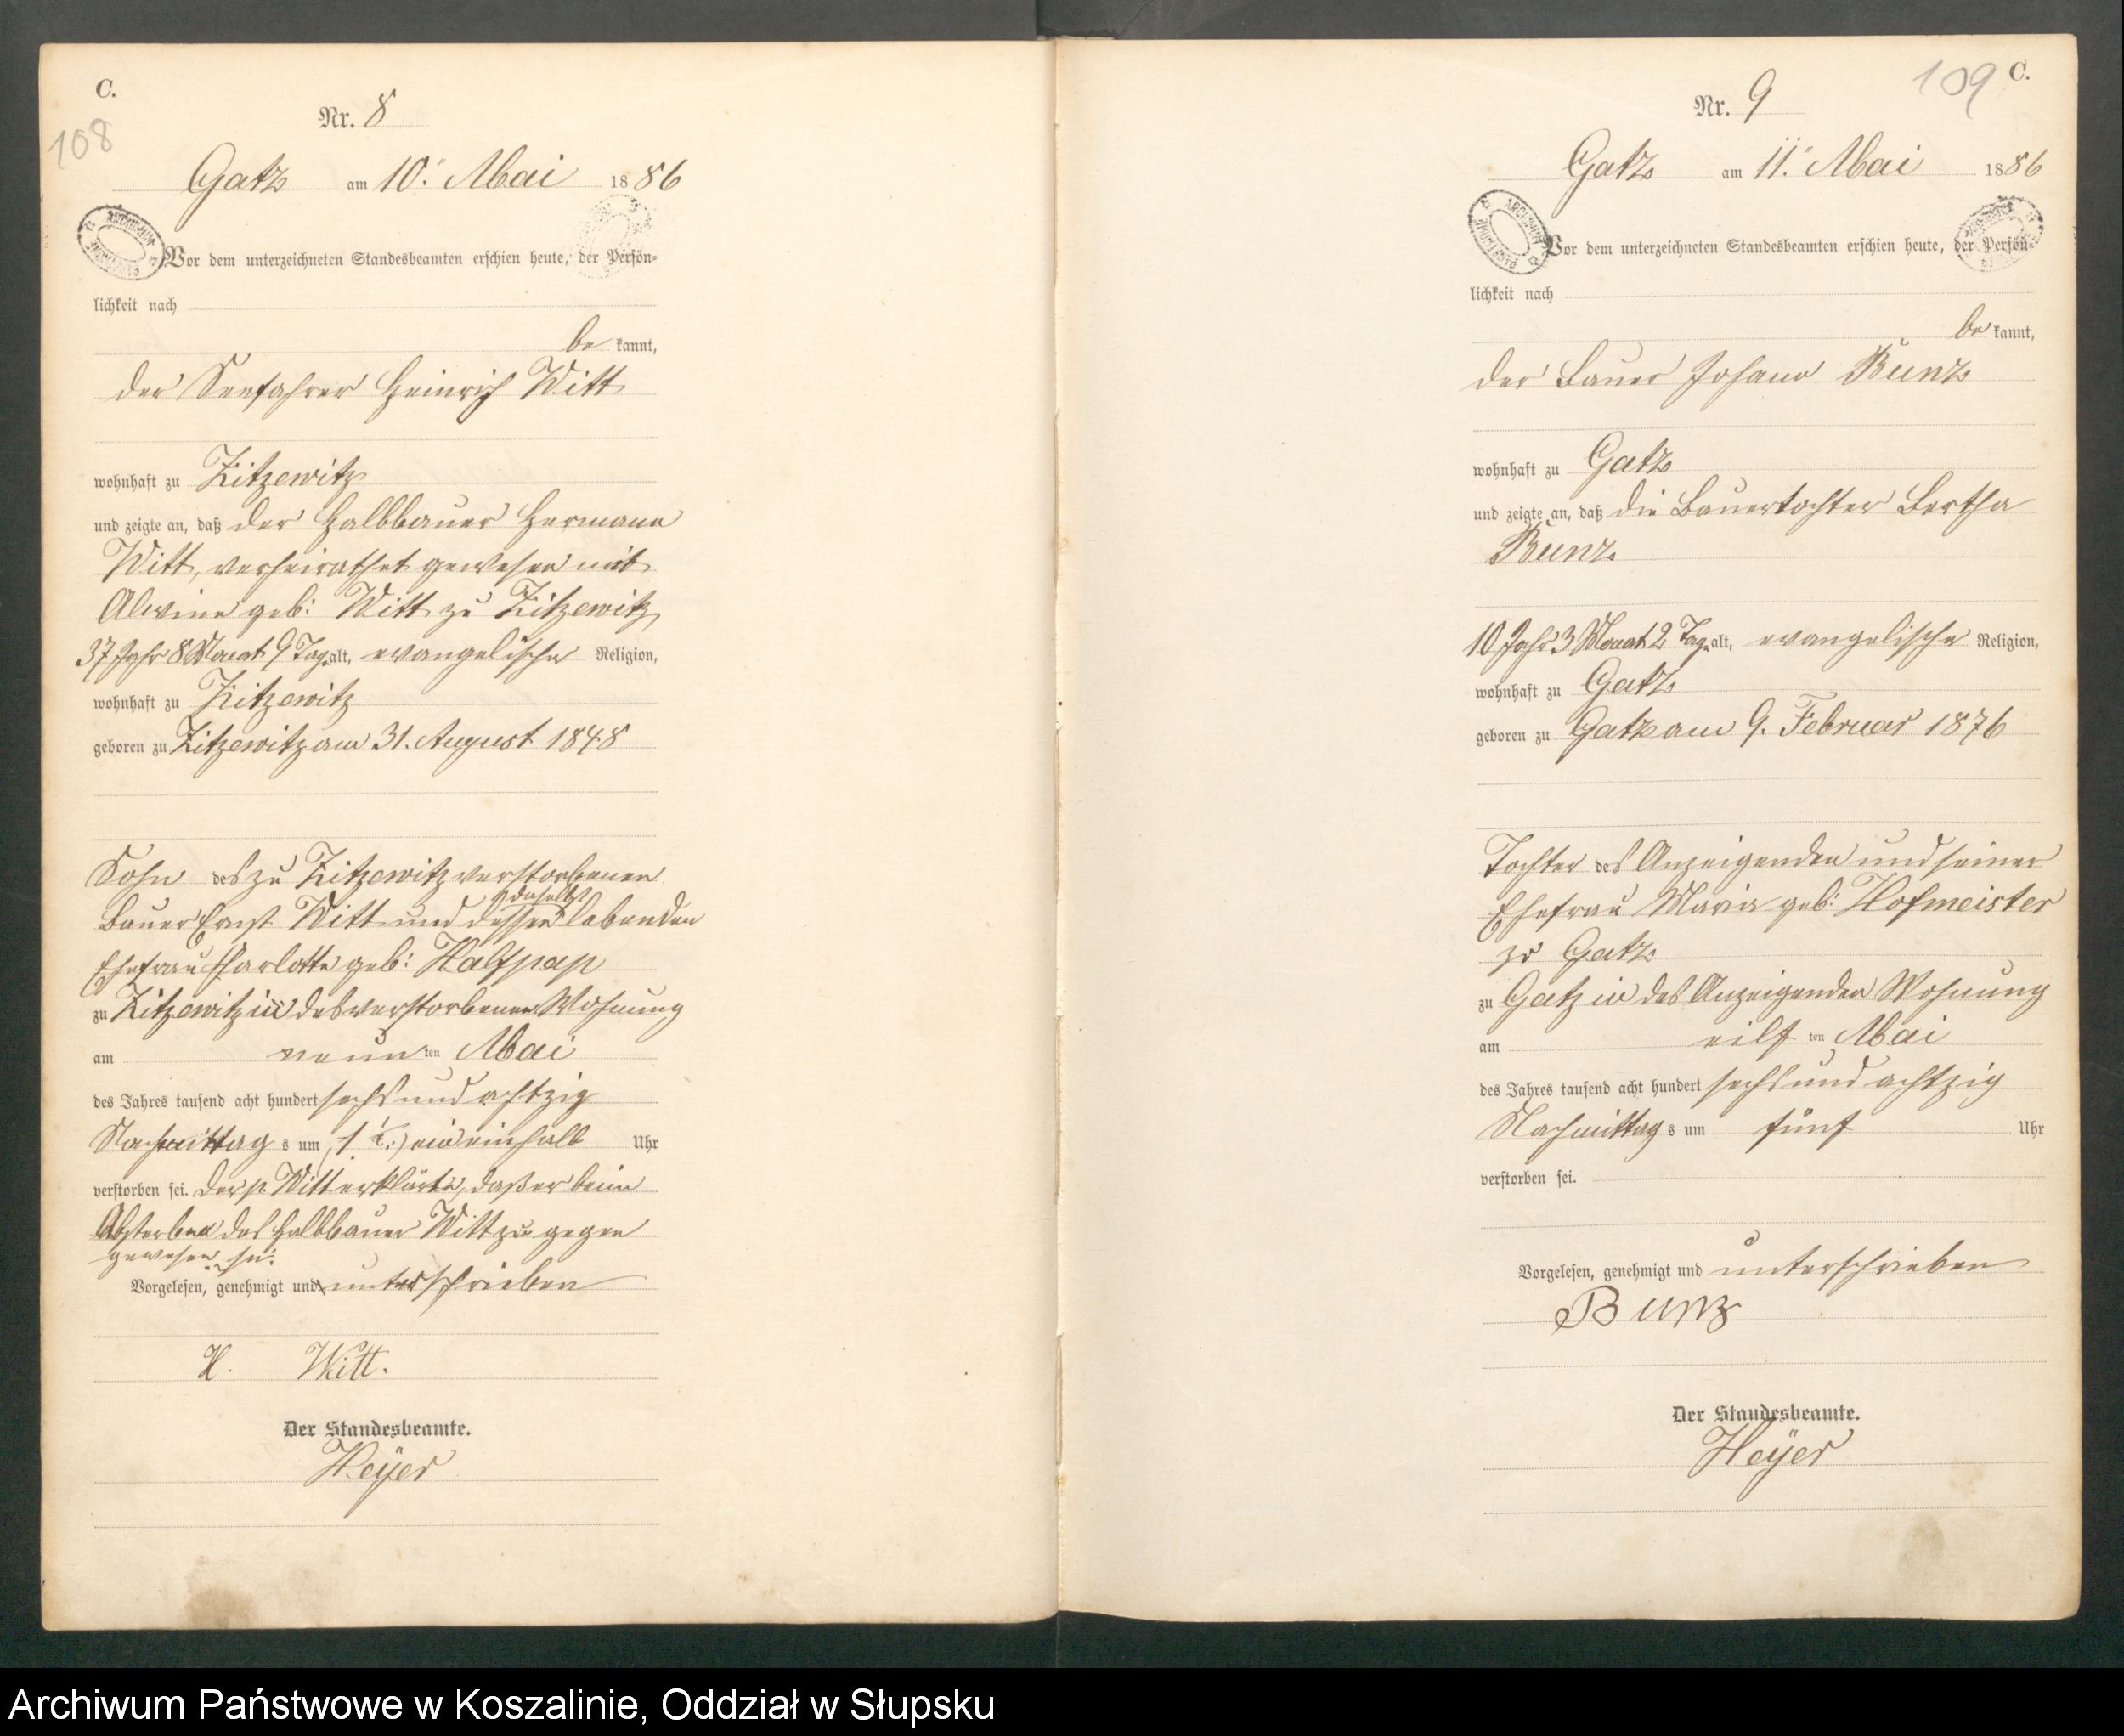 C.
108
Nr. 8
Gatz am 10. Mai 1886
Vor dem unterzeichneten Standesbeamten erschien heute, der Persön-
lichkeit nach
be kannt,
der Seefahrer Heinrich Witt
wohnhaft zu Zitzewitz
und zeigte an, daß der Halbbauer Hermann
Witt, verheirathet gewesen mit
Alwine geb: Witt zu Zitzewitz
37 Jahr 8 Monat 9 Tag alt, evangelischer Religion,
wohnhaft zu Zitzewitz
geboren zu Zitzewitz am 31. August 1848
Sohn des zu Zitzewitz verstorbenen
daselbst
Bauer Ernst Witt und dessen lebenden
Ehefrau Charlotte geb: Halfpap
zu Zitzewitz in des verstorbenen Wohnung
am neun ten Mai
des Jahres tausend acht hundert sechs und achtzig
Nachmittag s um 1 ein einhalb Uhr
verstorben sei. Der p. Witt erklärte, daß er beim
Absterben des Halbbauer Witt zu gegen
gewesen sei.
Vorgelesen, genehmigt und unterschrieben
H. Witt.
Der Standesbeamte.
Heyer
109
C.
Nr. 9
Gatz am 11. Mai 1886
Vor dem unterzeichneten Standesbeamten erschien heute, der Persön-
lichkeit nach
be kannt,
der Bauer Johann Bunz
wohnhaft zu Gatz
und zeigte an, daß die Bauertochter Bertha
Bunz
10 Jahr 3 Monat 2 Tag alt, evangelischer Religion,
wohnhaft zu Gatz
geboren zu Gatz am 9. Februar 1876
Tochter des Anzeigenden und seiner
Ehefrau Maria geb: Hofmeister
zu Gatz
zu Gatz in des Anzeigenden Wohnung
am eilf ten Mai
des Jahres tausend acht hundert sechs und achtzig
Nachmittag s um fünf Uhr
verstorben sei.
Vorgelesen, genehmigt und unterschrieben
Bunz
Der Standesbeamte.
Heyer
Archiwum Państwowe w Koszalinie, Oddział w Słupsku